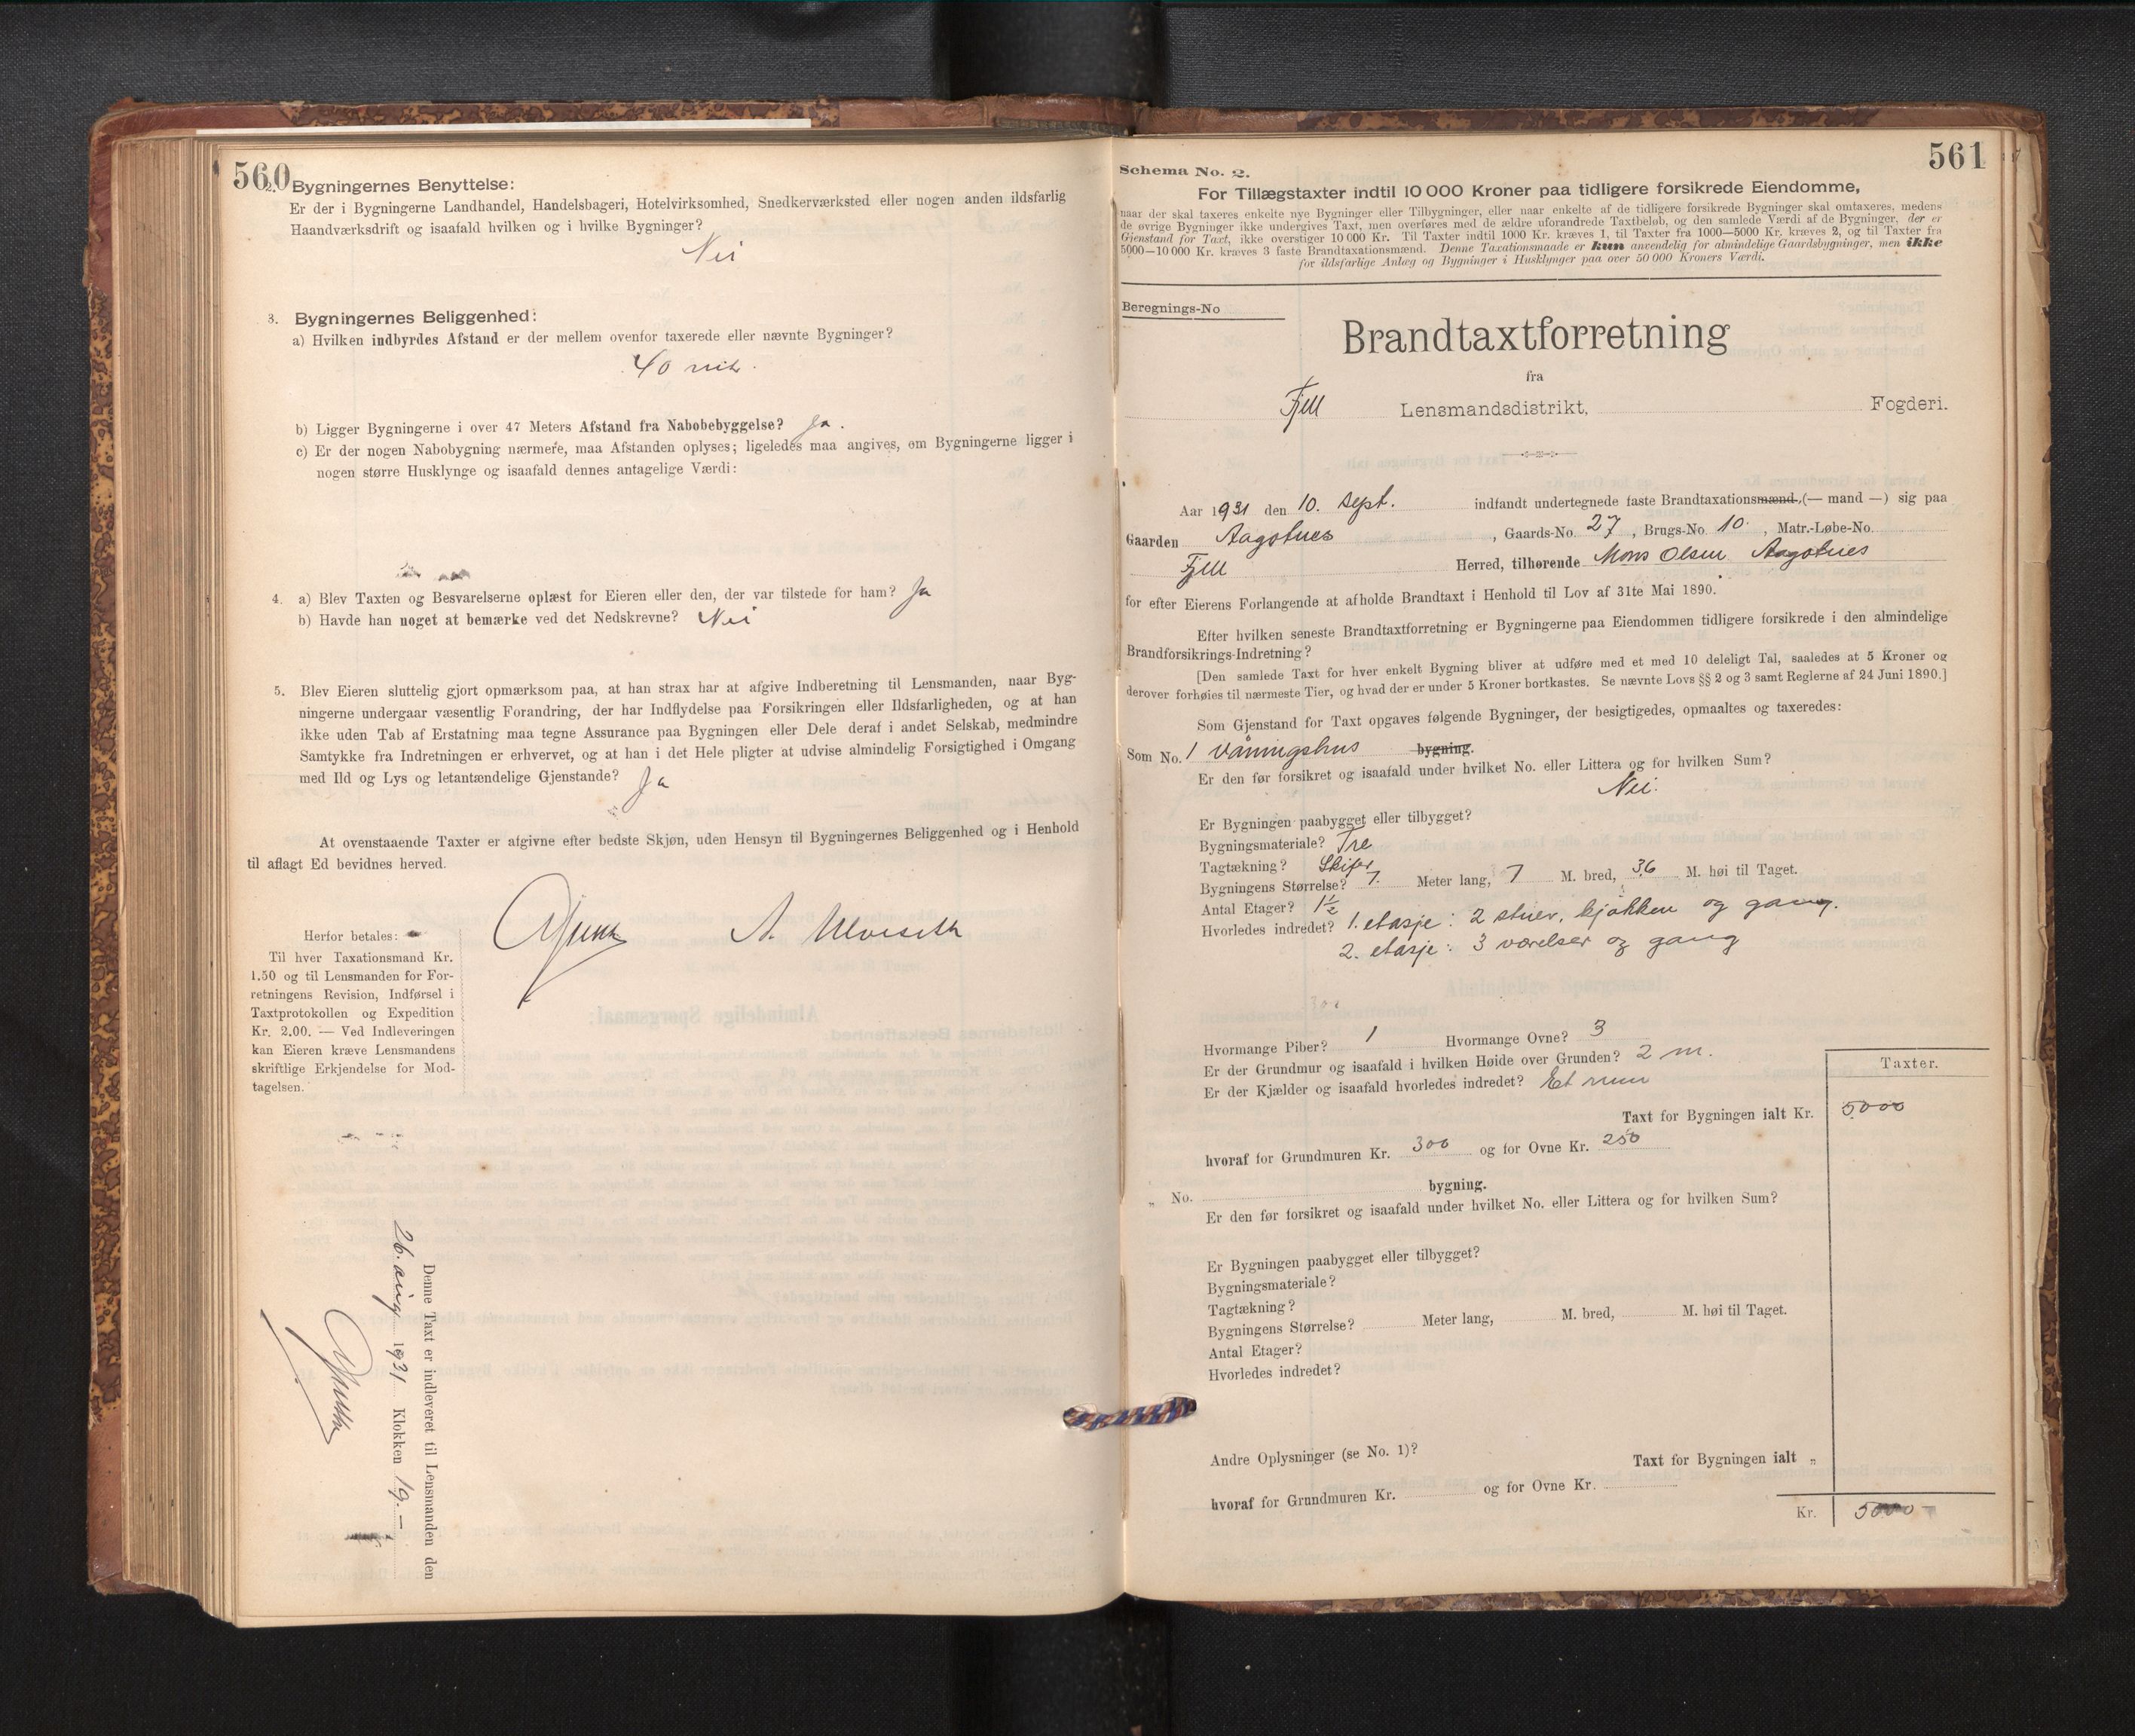 560
2. Bygningernes Benyttelse:
Er der i Bygningerne Landhandel, Handelsbageri, Hotelvirksomhed, Snedkerværksted eller nogen anden ildsfarlig
Haandværksdrift og isaafald hvilken og i hvilke Bygninger?
Nei
3. Bygningernes Beliggenhed:
a) Hvilken indbyrdes Afstand er der mellem ovenfor taxerede eller nævnte Bygninger?
40 mtr.
b) Ligger Bygningerne i over 47 Meters Afstand fra Nabobebyggelse? Ja.
c) Er der nogen Nabobygning nærmere, maa Afstanden oplyses; ligeledes maa angives, om Bygningerne ligger i
nogen større Husklynge og isaafald dennes antagelige Værdi:
4. a) Blev Taxten og Besvarelserne oplæst for Eieren eller den, der var tilstede for ham? Ja
b) Havde han noget at bemærke ved det Nedskrevne? Nei
5. Blev Eieren sluttelig gjort opmærksom paa, at han strax har at afgive Indberetning til Lensmanden, naar Byg-
ningerne undergaar væsentlig Forandring, der har Indflydelse paa Forsikringen eller Ildsfarligheden, og at han
ikke uden Tab af Erstatning maa tegne Assurance paa Bygningen eller Dele deraf i andet Selskab, medmindre
Samtykke fra Indretningen er erhvervet, og at han i det Hele pligter at udvise almindelig Forsigtighed i Omgang
med Ild og Lys og letantændelige Gjenstande? Ja
At ovenstaaende Taxter er afgivne efter bedste Skjøn, uden Hensyn til Bygningernes Beliggenhed og i Henhold
til aflagt Ed bevidnes herved.
A. Ulveseth
Herfor betales:
Til hver Taxationsmand Kr.
1.50 og til Lensmanden for For-
retningens Revision, Indførsel i
Taxtprotokollen og Expedition
Kr. 2.00. — Ved Indleveringen
kan Eieren kræve Lensmandens
skriftlige Erkjendelse for Mod-
tagelsen.
Denne Taxt er indleveret til Lensmanden den
26. aug 1931 Klokken 19.–
561
Schema No. 2.
For Tillægstaxter indtil 10 000 Kroner paa tidligere forsikrede Eiendomme,
naar der skal taxeres enkelte nye Bygninger eller Tilbygninger, eller naar enkelte af de tidligere forsikrede Bygninger skal omtaxeres, medens
de øvrige Bygninger ikke undergives Taxt, men overføres med de ældre uforandrede Taxtbeløb, og den samlede Værdi af de Bygninger, der er
Gjenstand for Taxt, ikke overstiger 10 000 Kr. Til Taxter indtil 1000 Kr. kræves 1, til Taxter fra 1000—5000 Kr. kræves 2, og til Taxter fra
5000—10 000 Kr. kræves 3 faste Brandtaxationsmænd. Denne Taxationsmaade er kun anvendelig for almindelige Gaardsbygninger, men ikke
for ildsfarlige Anlæg og Bygninger i Husklynger paa over 50 000 Kroners Værdi.
Beregnings-No
Brandtaxtforretning
fra
Fjell Lensmandsdistrikt, Fogderi.
Aar 1931 den 10. sept. indfandt undertegnede faste Brandtaxationsmænd (— mand —) sig paa
Gaarden Aagotnes, Gaards-No. 27, Brugs-No 10., Matr.-Løbe-No.
Fjell Herred, tilhørende Mons Olsen Aagotnes
for efter Eierens Forlangende at afholde Brandtaxt i Henhold til Lov af 31te Mai 1890.
Efter hvilken seneste Brandtaxtforretning er Bygningerne paa Eiendommen tidligere forsikrede i den almindelige
Brandforsikrings-Indretning?
[Den samlede Taxt for hver enkelt Bygning bliver at udføre med et med 10 deleligt Tal, saaledes at 5 Kroner og
derover forhøies til nærmeste Tier, og hvad der er under 5 Kroner bortkastes. Se nævnte Lovs §§ 2 og 3 samt Reglerne af 24 Juni 1890.]
Som Gjenstand for Taxt opgaves følgende Bygninger, der besigtigedes, opmaaltes og taxeredes:
Som No. 1 våningshus bygning.
Er den før forsikret og isaafald under hvilket No. eller Littera og for hvilken Sum?
Nei.
Er Bygningen paabygget eller tilbygget?
Bygningsmateriale? Tre
Tagtækning? Skifer
Bygningens Størrelse? 7. Meter lang, 7 M. bred, 3,6 M. høi til Taget.
Antal Etager? 1½
Hvorledes indredet? 1. etasje: 2 stuer, kjøkken og gang.
2. etasje: 3 værelser og gang
Hvormange Piber? 1 Hvormange Ovne? 3
Er der Grundmur og isaafald i hvilken Høide over Grunden? 2 m.
Er der Kjælder og isaafald hvorledes indredet? Et rum
Taxter.
Taxt for Bygningen ialt Kr. 5000
hvoraf for Grundmuren Kr. 300 og for Ovne Kr. 250
„ No. bygning.
Er den før forsikret og isaafald under hvilket No. eller Littera og for hvilken Sum?
Er Bygningen paabygget eller tilbygget?
Bygningsmateriale?
Tagtækning?
Bygningens Størrelse? Meter lang, M. bred, M. høi til Taget.
Antal Etager?
Hvorledes indredet?
Andre Oplysninger (se No. 1)?
Taxt for Bygningen ialt „
hvoraf for Grundmuren Kr. og for Ovne Kr.
Kr. 5000